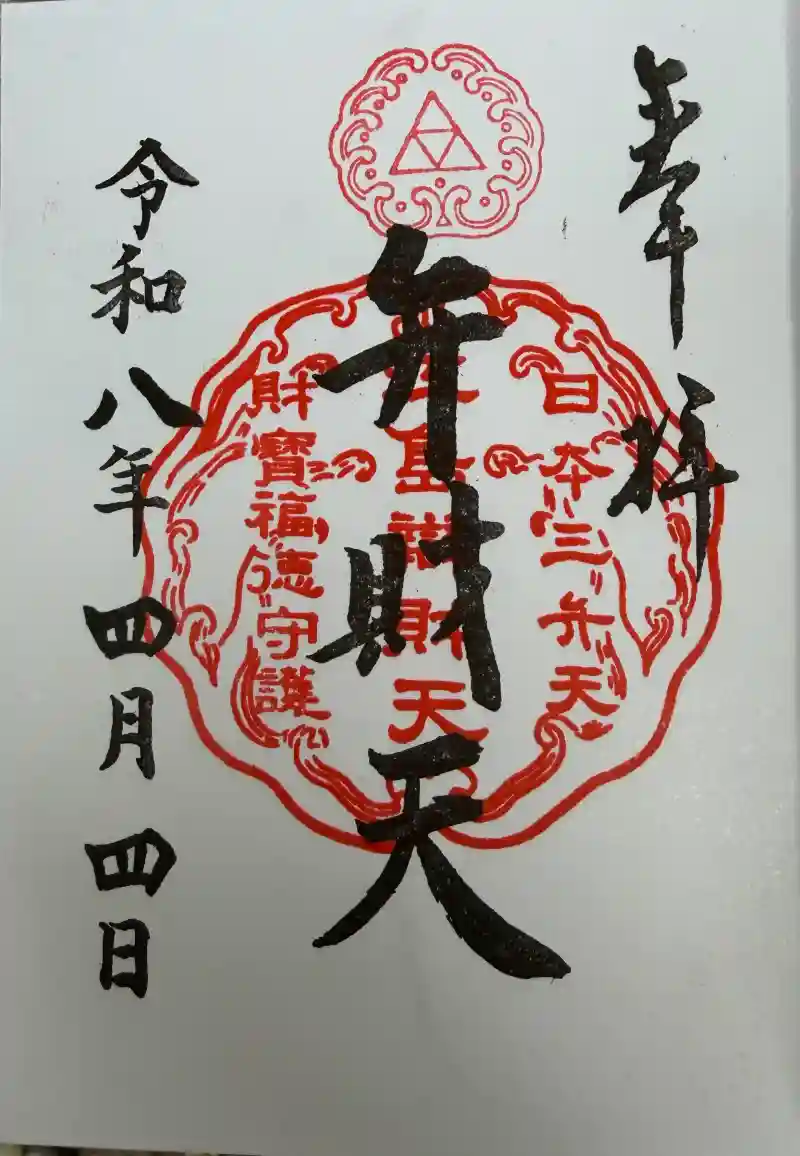 奉拝
日本三弁天
江島辨財天
財寶福徳守護
弁財天
令和八年四月四日